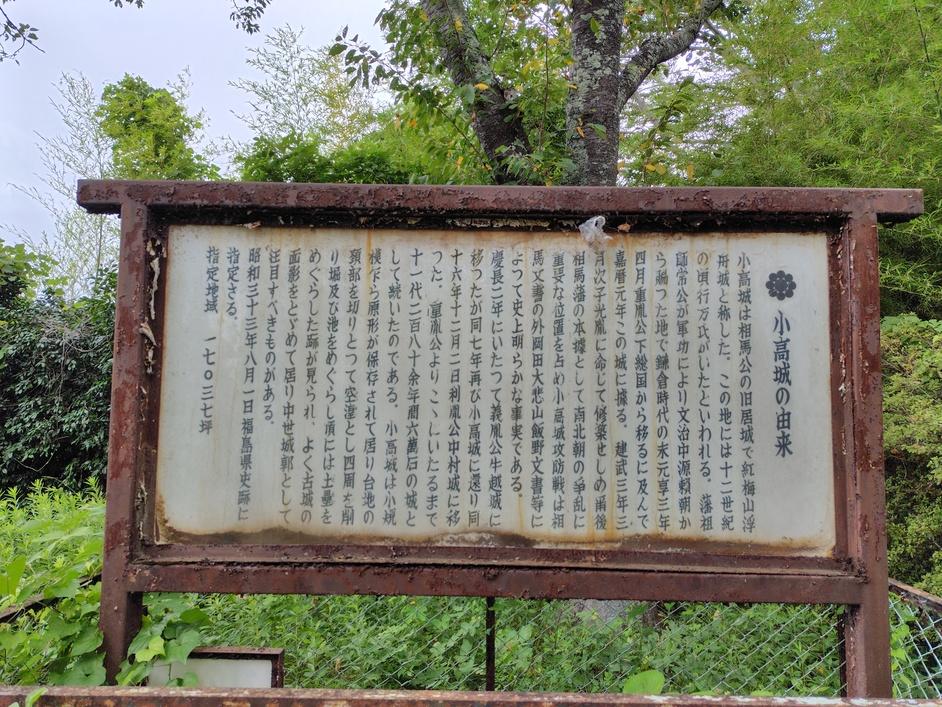 小高城の由来
小高城は相馬公の旧居城で紅梅山浮
舟城と称した。この地には十二世紀
の頃行方氏がいたといわれる。藩祖
師常公が軍功により文治中源頼朝か
ら賜つた地で鎌倉時代の末元享三年
四月重胤公下総国から移るに及んで
嘉暦元年この城に據る。建武三年三
月次子光胤に命じて修築せしめ爾後
相馬藩の本據として南北朝の争乱に
重要な位置を占め小高城攻防戦は相
馬文書の外岡田大悲山飯野文書等に
よつて史上明らかな事実である。
慶長二年にいたつて義胤公牛越城に
移つたが同七年再び小高城に還り同
十六年十二月二日利胤公中村城に移
つた。重胤公よりこゝにいたるまで
十一代二百八十余年爾六萬石の城と
して続いたのである。小高城は小規
模乍ら原形が保存されて居り台地の
頚部を切りとつて空湟とし四周を削
り堀及び池をめぐらし頃には土壘を
めぐらした跡が見られ、よく古城の
面影をとゞめて居り中世城郭として
注目すべきものがある。
昭和三十三年八月一日福島県史跡に
指定さる。
指定地域　一七〇三七坪